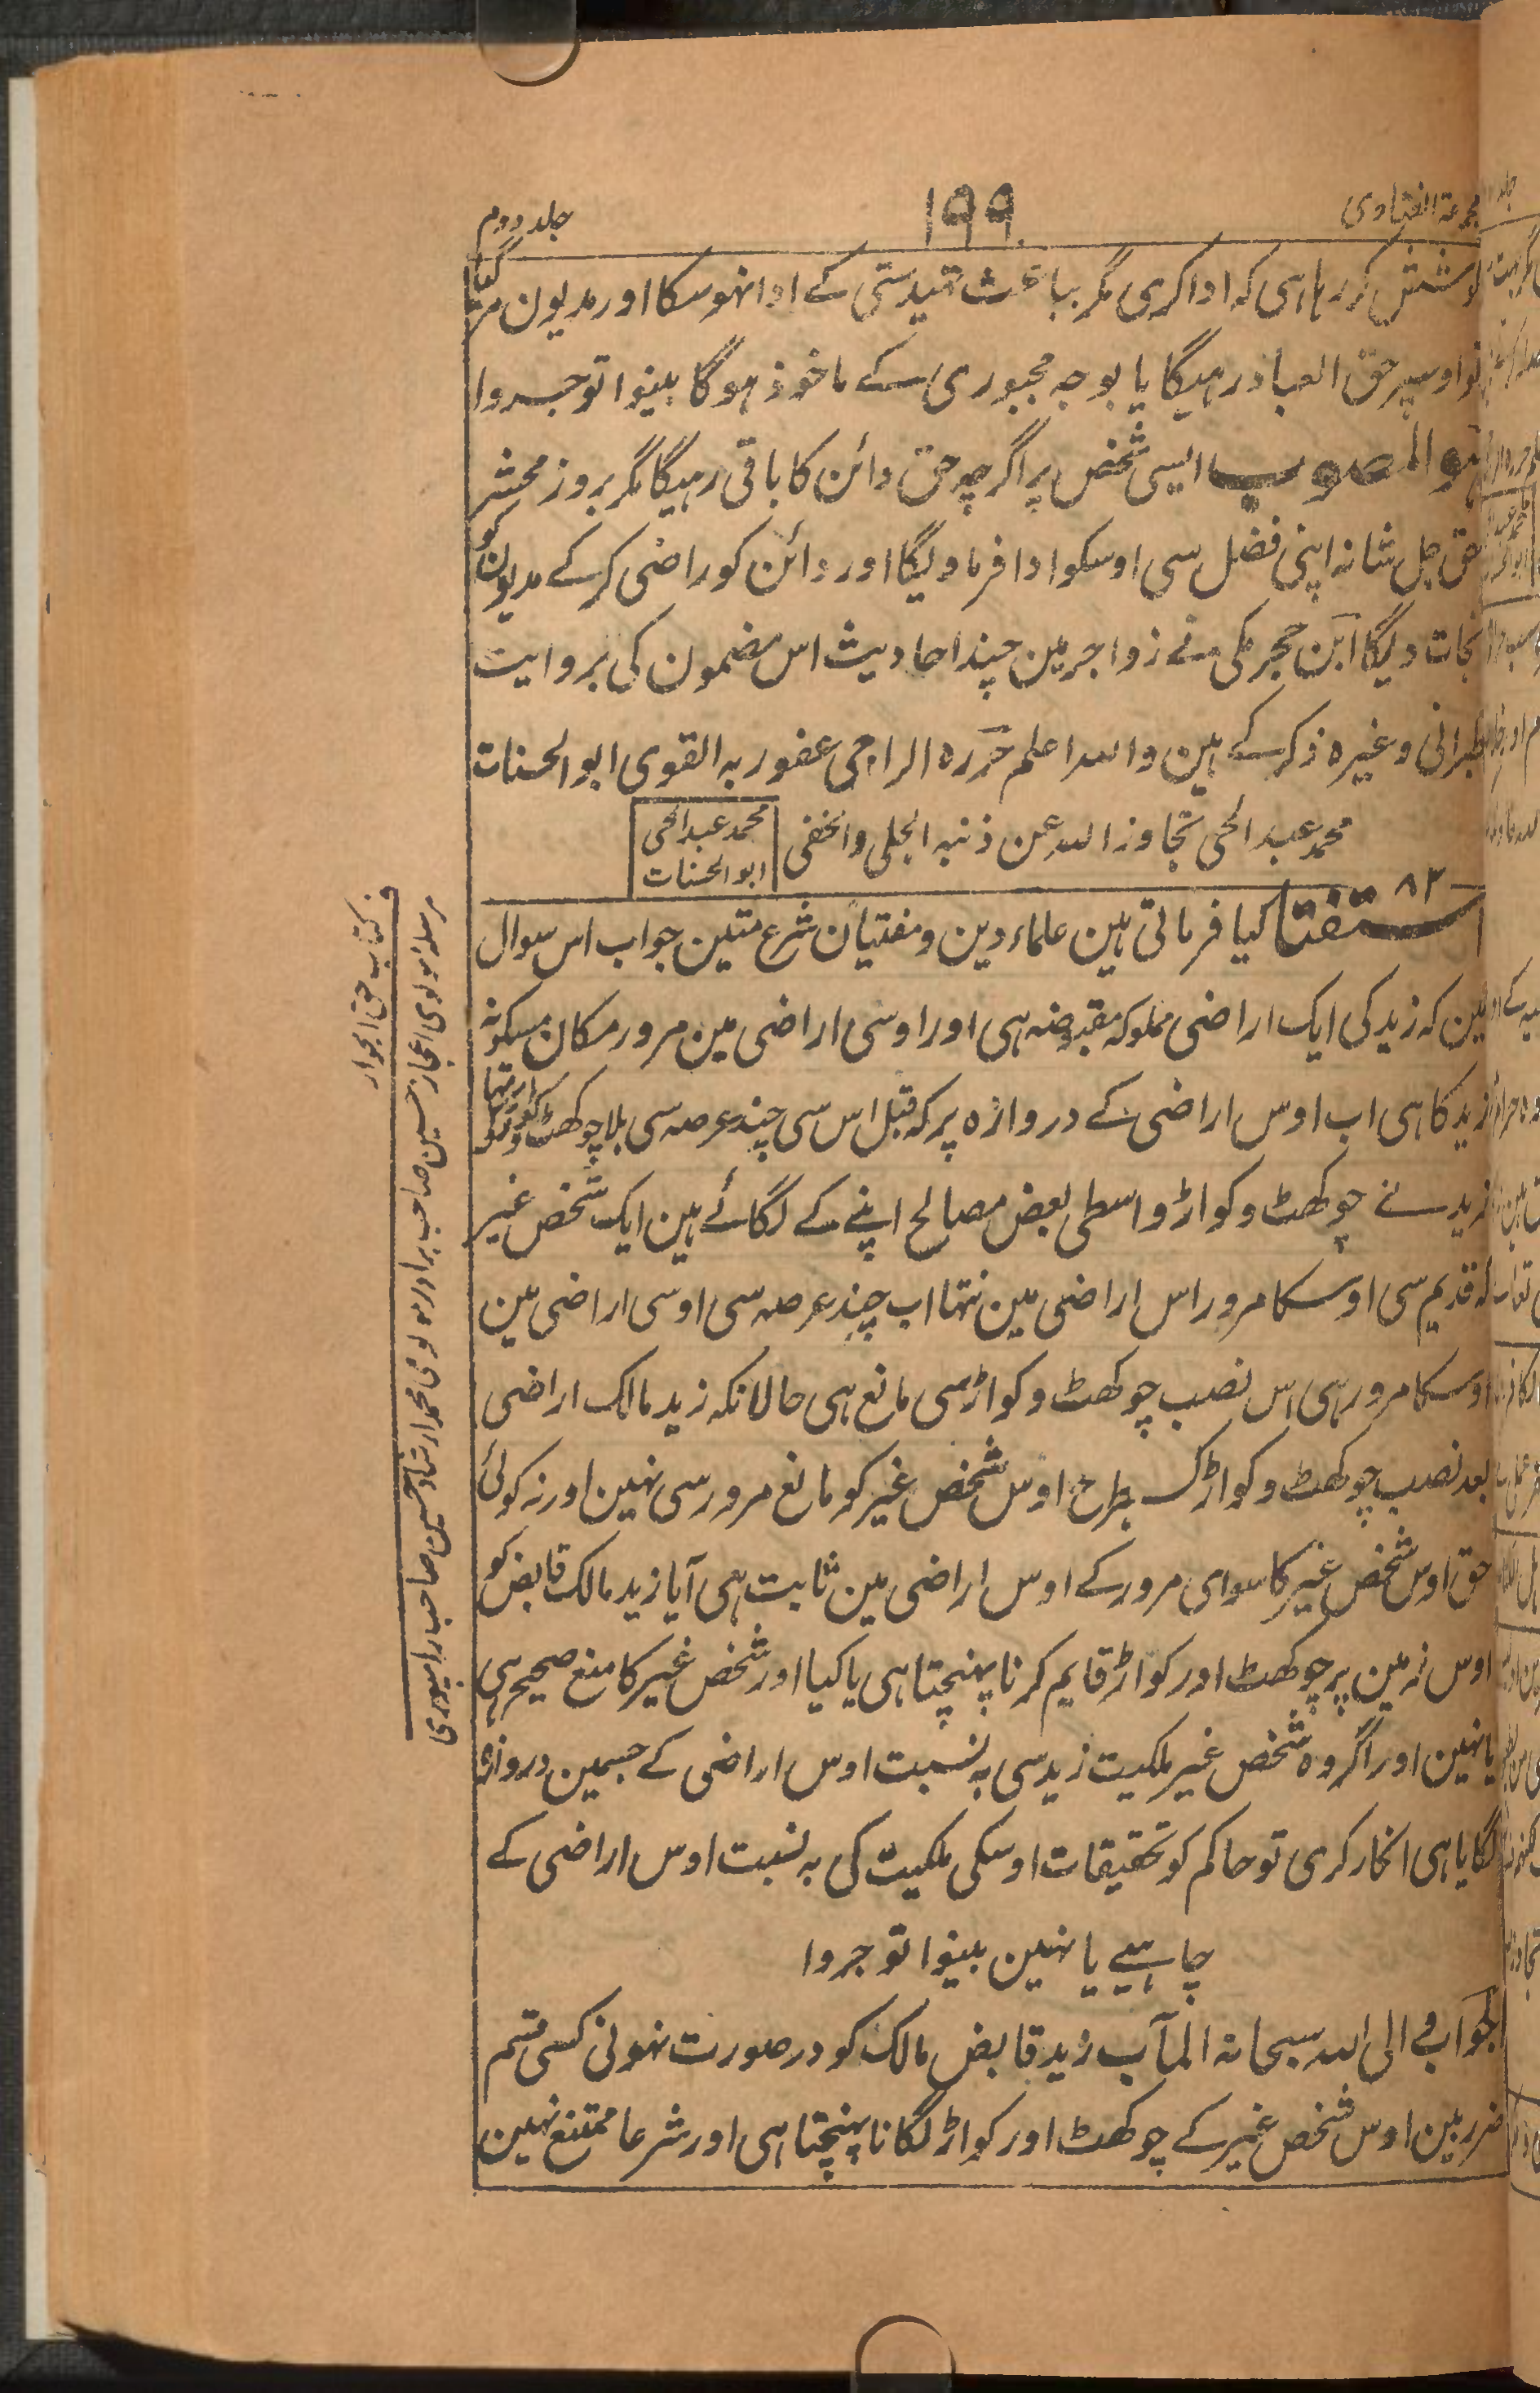 مجموعۃ الفتاوی
۱۹۹
جلد دوم
کوشش کر رہا ہی کہ ادا کری مگر بباعث تہیدستی کے ادا نہو سکا اور مدیون مر گیا
تو اوسپر حق العباد رہیگا یا بوجہ مجبوری کے ماخوذ ہوگا بینوا توجروا
ہو المصوب ایسی شخص پر اگرچہ حق دائن کا باقی رہیگا مگر بروز محشر
حق جل شانہ اپنی فضل سی اوسکو ادا فرماویگا اور دائن کو راضی کرکے مدیون کو
نجات دیگا ابن حجر مکی نے زواجر مین چند احادیث اس مضمون کی بروایت
طبرانی وغیرہ ذکر کے ہین واللہ اعلم حررہ الراجی عفو ربہ القوی ابو الحسنات
محمد عبد الحی تجاوز اللہ عن ذنبہ الجلی والخفی
محمد عبد الحی
ابو الحسنات
۸۲
استفتا کیا فرماتی ہین علماء دین و مفتیان شرع متین جواب اس سوال
مین کہ زید کی ایک اراضی مملوکہ مقبوضہ ہی اور اوسی اراضی مین مرور مکان مسکونہ
زید کا ہی اب اوس اراضی کے دروازہ پر کہ قبل اس سی چند عرصہ سی بلا چوکھٹ و کواڑ تہا
زید نے چوکھٹ و کواڑ واسطی بعض مصالح اپنے کے لگائے ہین ایک شخص غیر
کہ قدیم سی اوسکا مرور اس اراضی مین نتہا اب چند عرصہ سی اوسی اراضی مین
اوسکا مرور ہی اس نصب چوکھٹ و کواڑ سی مانع ہی حالانکہ زید مالک اراضی
بعد نصب چوکھٹ و کواڑ کسیطرح اوس شخص غیر کو مانع مرور سی نہین اور نہ کوئی
حق اوس شخص غیر کا سوای مرور کے اوس اراضی مین ثابت ہی آیا زید مالک قابض کو
اوس زمین پر چوکھٹ اور کواڑ قایم کرنا پہنچتا ہی یا کیا اور شخص غیر کا منع صحیح ہی
یا نہین اور اگر وہ شخص غیر ملکیت زید سی بہ نسبت اوس اراضی کے جسمین دروازہ
لگایا ہی انکار کری تو حاکم کو تحقیقات اوسکی ملکیت کی بہ نسبت اوس اراضی کے
چاہیے یا نہین بینوا توجروا
الجواب والی اللہ سبحانہ المآب زید قابض مالک کو در صورت نہونی کسی قسم
ضرر مین اوس شخص غیر کے چوکھٹ اور کواڑ لگانا پہنچتا ہی اور شرعا ممتنع نہین
مرسلہ مولوی اعجاز حسین صاحب برادر مولوی محمد ارشاد حسین صاحب رامپوری
ف کتاب حق الجوار